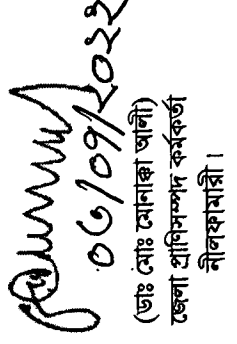 ০৬/০৭/২০২২
(ডাঃ মোঃ মোনাক্কা আলী)
জেলা প্রাণিসম্পদ কর্মকর্তা
নীলফামারী।